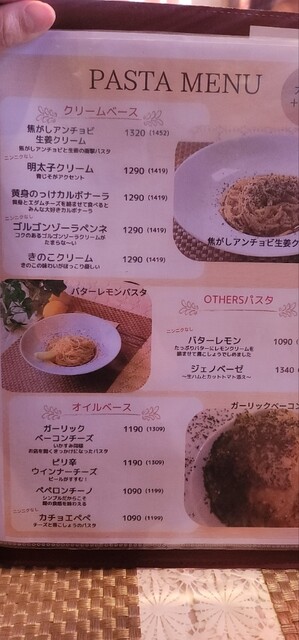 PASTA MENU
クリームベース
焦がしアンチョビ
生姜クリーム 1320 (1452)
焦がしアンチョビと生姜の衝撃パスタ
ニンニクなし
明太子クリーム 1290 (1419)
青じそがアクセント
黄身のっけカルボナーラ 1290 (1419)
黄身とエダムチーズを絡ませて食べると
みんな大好きカルボナーラ
ニンニクなし
ゴルゴンゾーラペンネ 1290 (1419)
コクのあるゴルゴンゾーラクリームが
たまらな〜い
きのこクリーム 1290 (1419)
きのこの味わいがほっこり優しい
焦がしアンチョビ生姜ク
バターレモンパスタ
OTHERSパスタ
ニンニクなし
バターレモン 1090 (
たっぷりバターにレモンクリームを
絡ませて黒こしょうでしめました
ジェノベーゼ 1340 (
〜生ハムとカットトマト添え〜
オイルベース
ガーリック
ベーコンチーズ 1190 (1309)
いかすみ同様
お店を開くきっかけになったパスタ
ピリ辛
ウインナーチーズ 1190 (1309)
ビールがすすむ！
ペペロンチーノ 1090 (1199)
シンプルだからこそ
麺の食感を味わえる
ニンニクなし
カチョエペペ 1090 (1199)
チーズと黒こしょうのパスタ
ガーリックベーコン